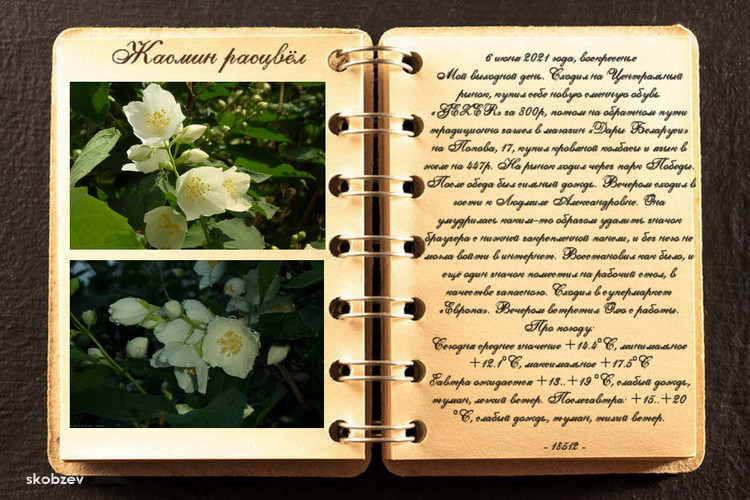 Жасмин расцвёл
6 июня 2021 года, воскресенье
Мой выходной день. Сходил на Центральный
рынок, купил себе новую сменную обувь
«GEZER» за 800р, потом на обратном пути
традиционно зашел в магазин «Дары Беларуси»
на Попова, 17, купил кровяной колбасы и язык в
желе на 447р. На рынок ходил через парк Победы.
После обеда был сильный дождь. Вечером сходил в
гости к Людмиле Александровне. Она
умудрилась каким-то образом удалить значок
браузера с нижней закрепленной панели, и без него не
могла войти в интернет. Восстановил как было, и
ещё один значок поместил на рабочий стол, в
качестве запасного. Сходил в супермаркет
«Европа». Вечером встретил Олю с работы.
Про погоду:
Сегодня среднее значение +14.4°C, минимальное
+12.1°C, максимальное +17.5°C
Завтра ожидается +13..+19 °C, слабый дождь,
туман, легкий ветер. Послезавтра: +15..+20
°C, слабый дождь, туман, тихий ветер.
- 18512 -
skobzev